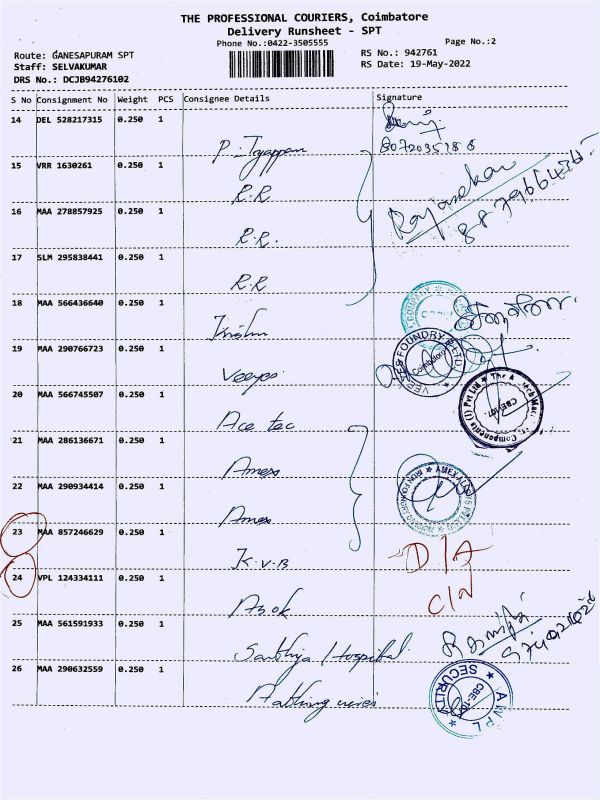 THE PROFESSIONAL COURIERS, Coimbatore
Delivery Runsheet - SPT
Phone No.:0422-3505555
Page No.:2
Route: GANESAPURAM SPT
RS No.: 942761
Staff: SELVAKUMAR
RS Date: 19-May-2022
DRS No.: DCJB94276102
S No Consignment No Weight PCS Consignee Details Signature
14 DEL 528217315 0.250 1
P. Iyappan
8072035186
15 VRR 1630261 0.250 1
R.R
Rajasekar
16 MAA 278857925 0.250 1
R.R.
17 SLM 295838441 0.250 1
R.R
18 MAA 566436640 0.250 1
COMPANY
19 MAA 290766723 0.250 1
FOUNDRY
Coimbatore
20 MAA 566745507 0.250 1
Ace tec
Components (I) Pvt Ltd
CBE-107.
21 MAA 286136671 0.250 1
22 MAA 290934414 0.250 1
23 MAA 857246629 0.250 1
K.V.B
D/A
24 VPL 124334111 0.250 1
C/N
Asok
25 MAA 561591933 0.250 1
Hospital
26 MAA 290632559 0.250 1
A.W.P.L
CBE-107
SECURITY